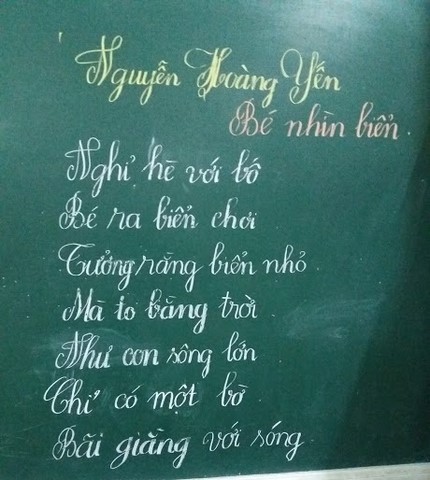 Nguyễn Hoàng Yến
Bé nhìn biển.
Nghỉ hè với bố
Bé ra biển chơi
Tưởng rằng biển nhỏ.
Mà to bằng trời.
Như con sông lớn
Chỉ có một bờ
Bãi giằng với sóng